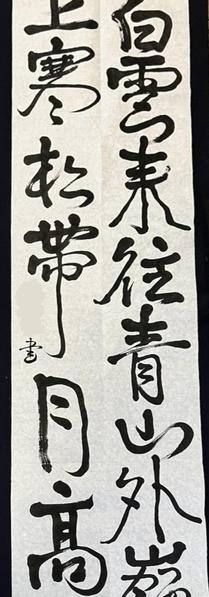 白雲来往青山外嶺
上寒松帯月高
書